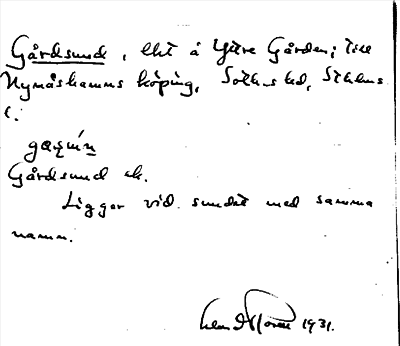 Gårdsund, lht å Yttre Gården; till
Nynäshamns köping, Sotholms hd, Sthlms
l.
Gårdsund ek.
Ligger vid sundet med samma
namn.
1931.